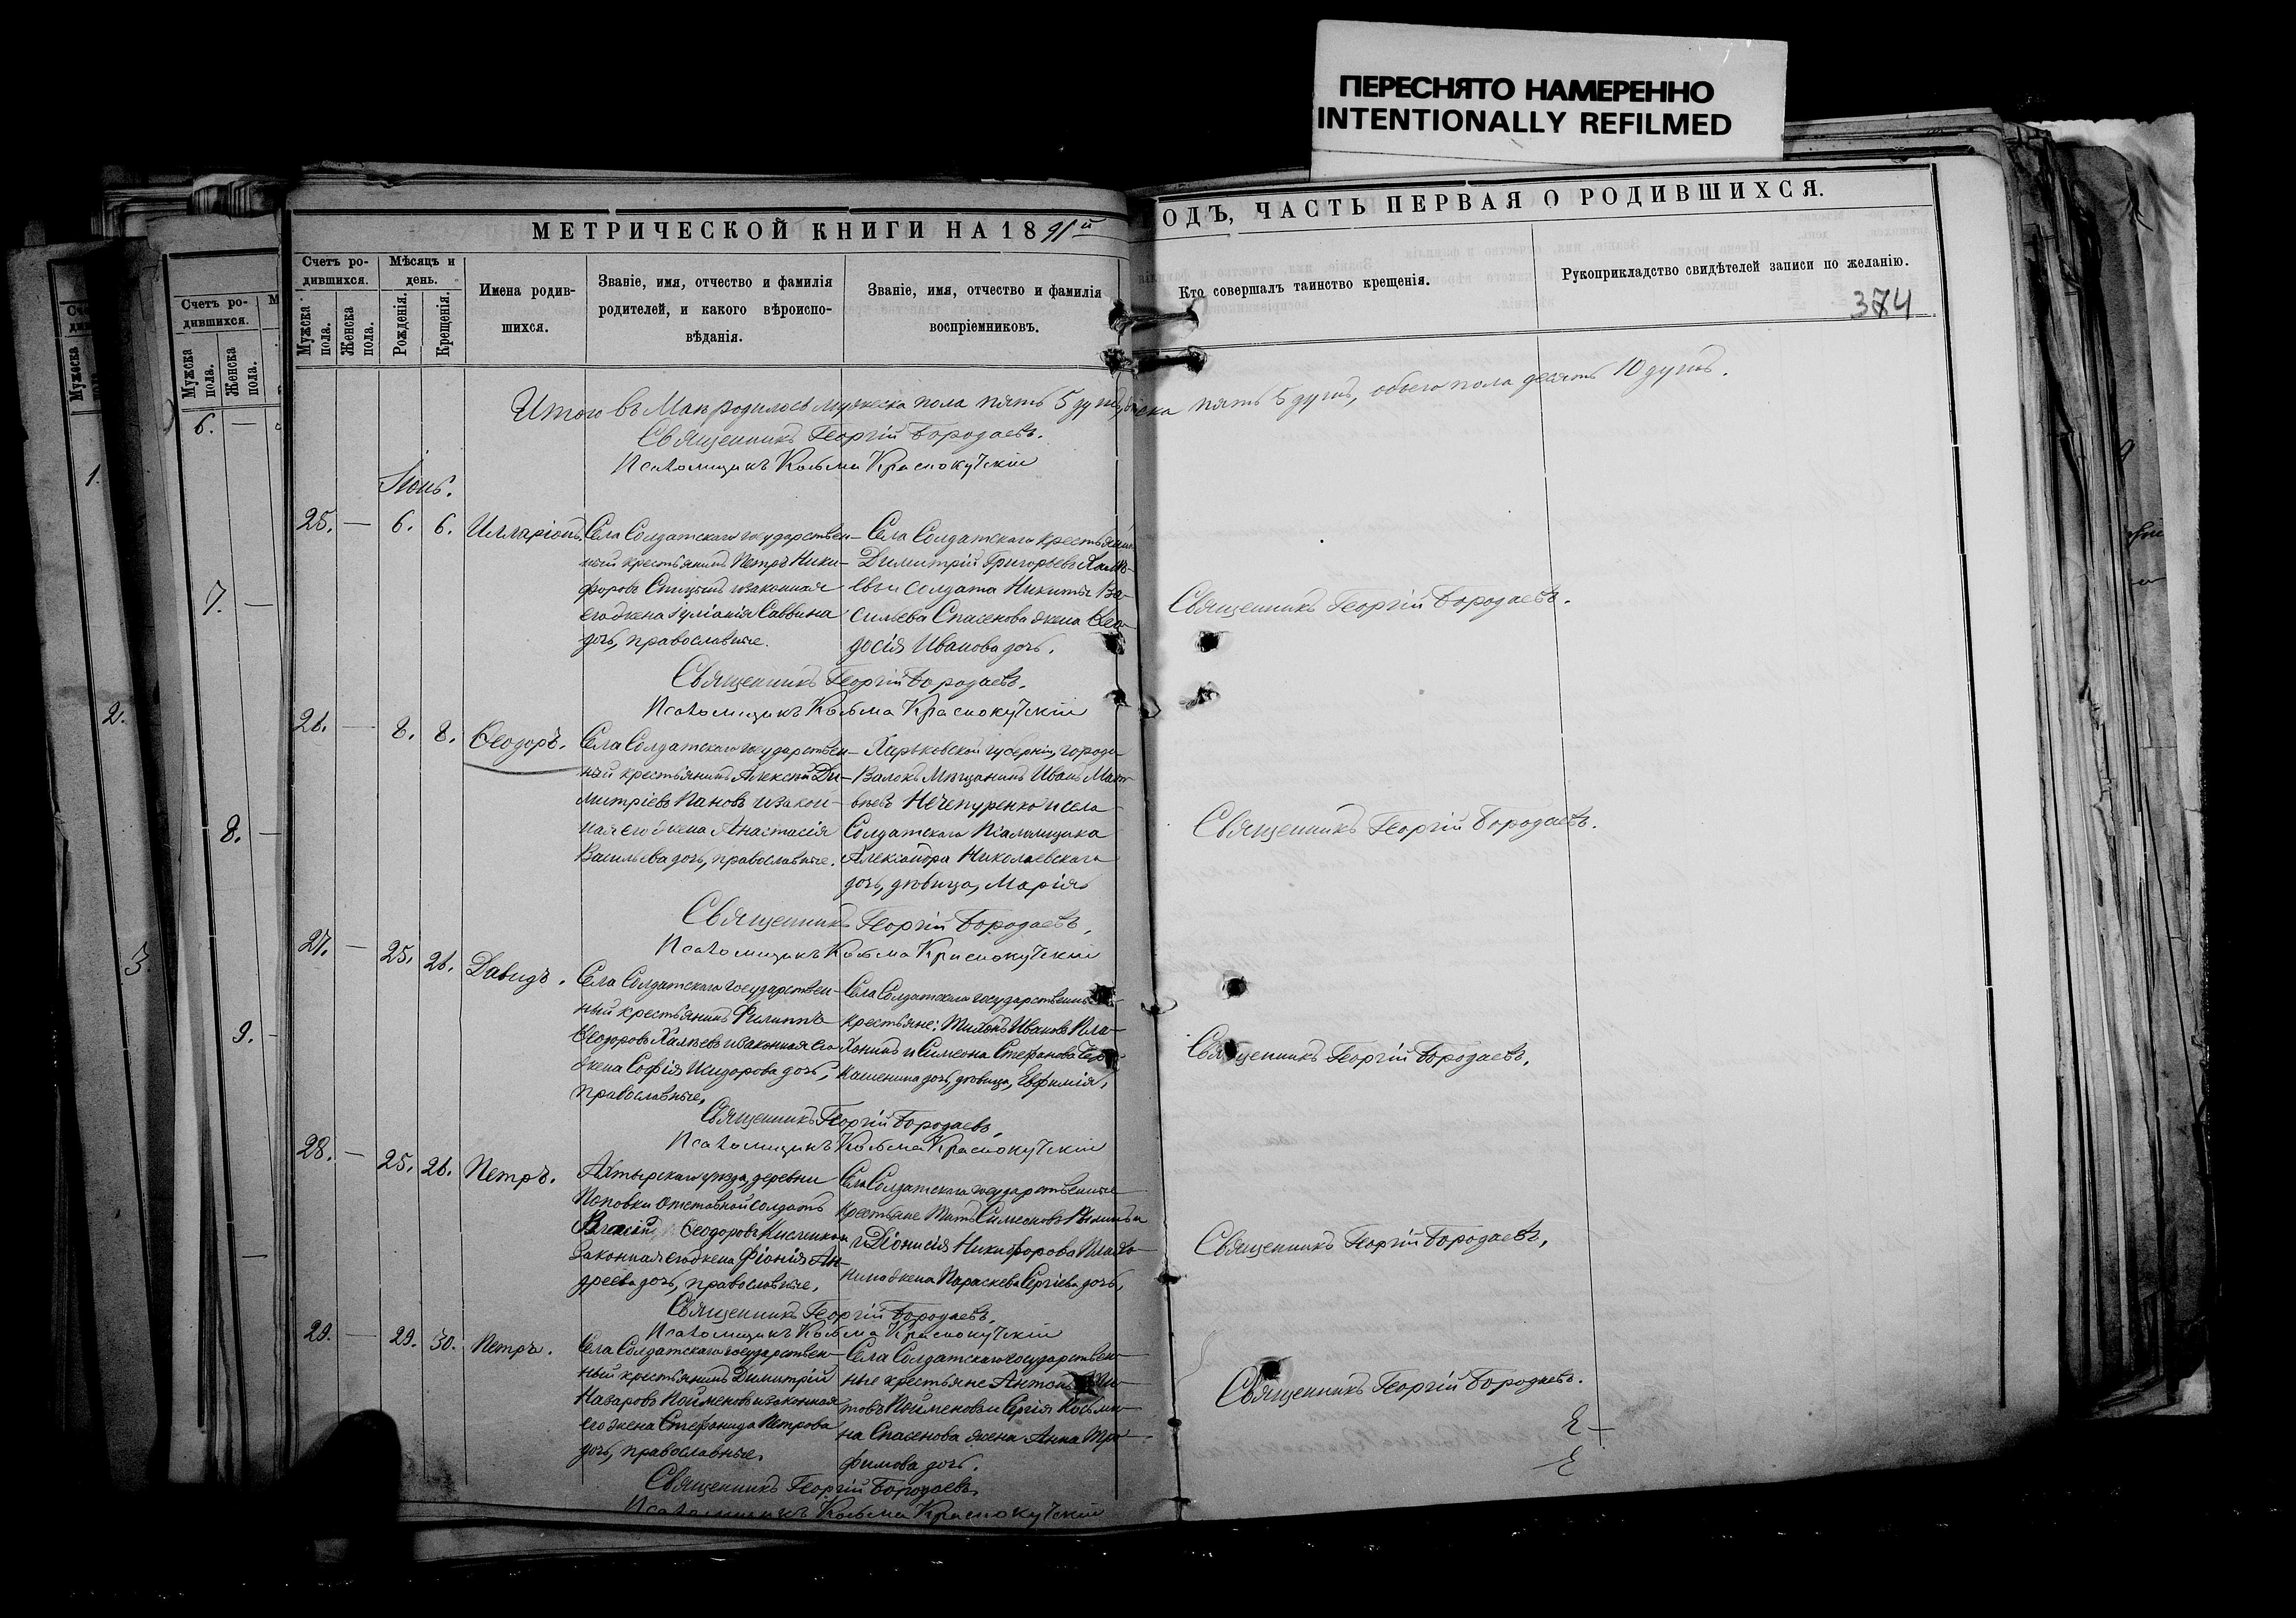 ПЕРЕСНЯТО НАМЕРЕННО
INTENTIONALLY REFILMED
МЕТРИЧЕСКОЙ КНИГИ НА 1891й
ОДЪ, ЧАСТЬ ПЕРВАЯ О РОДИВШИХСЯ.
Счетъ ро-
дившихся.
Мужска
пола.
Женска
пола.
Мѣсяцъ и
день.
Рожденія.
Крещенія.
Имена родив-
шихся.
Званіе, имя, отчество и фамилія
родителей, и какого вѣроиспо-
вѣданія.
Званіе, имя, отчество и фамилія
воспріемниковъ.
Кто совершалъ таинство крещенія.
Рукоприкладство свидѣтелей записи по желанію.
374
Итого въ Маѣ родилось мужеска пола пять 5 душъ, женска пять 5 душъ, обоего пола десять 10 душъ.
Священникъ Георгій Бородаевъ.
Псаломщикъ Косьма Краснокутскій
Іюнь.
25. — 6. 6. Илларіонъ.
Села Солдатскаго государствен-
ный крестьянинъ Петръ Ники-
форовъ Спицынъ и законная
его жена Іуліанія Саввина
дочь, православные.
Села Солдатскаго крестьянинъ
Димитрій Григорьевъ Халѣ-
евъ и солдата Никиты Ва-
сильева Спасенова жена Ѳео-
досія Иванова дочь.
Священникъ Георгій Бородаевъ.
Священникъ Георгій Бородаевъ.
Псаломщикъ Косьма Краснокутскій
26. — 8. 8. Ѳеодоръ.
Села Солдатскаго государствен-
ный крестьянинъ Алексѣй Ди-
митріевъ Пановъ и закон-
ная его жена Анастасія
Васильева дочь, православные.
Харьковской губерніи, города
Валокъ Мѣщанинъ Иванъ Мат-
вѣевъ Нечепуренко и села
Солдатскаго Псаломщика
Александра Николаевскаго
дочь, дѣвица, Марія
Священникъ Георгій Бородаевъ.
Священникъ Георгій Бородаевъ.
Псаломщикъ Косьма Краснокутскій
27. — 25. 26. Давидъ.
Села Солдатскаго государствен-
ный крестьянинъ Филиппъ
Ѳеодоровъ Халѣевъ и законная его
жена Софія Исидорова дочь,
православные.
Села Солдатскаго государственные
крестьяне: Тихонъ Ивановъ Пла-
хонинъ и Симеона Стефанова
дочь, дѣвица, Евфимія.
Священникъ Георгій Бородаевъ.
Священникъ Георгій Бородаевъ.
Псаломщикъ Косьма Краснокутскій
28. — 25. 26. Петръ.
Ахтырскаго уѣзда, деревни
Поповки отставной солдатъ
Ѳеодоровъ Кисленко и
законная его жена Фіонія Ан-
дреева дочь, православные.
Села Солдатскаго государственные
крестьяне Титъ Симеоновъ
и Діонисія Никифорова Плахо-
нина жена Параскева Сергіева дочь.
Священникъ Георгій Бородаевъ.
Священникъ Георгій Бородаевъ.
Псаломщикъ Косьма Краснокутскій
29. — 29. 30. Петръ.
Села Солдатскаго государствен-
ный крестьянинъ Димитрій
Назаровъ Пойменовъ и законная
его жена Стефанида Петрова
дочь, православные.
Села Солдатскаго государствен-
ные крестьяне Антонъ Ти-
товъ Пойменовъ и Сергія Косьми-
на Спасенова жена Анна Тро-
фимова дочь.
Священникъ Георгій Бородаевъ.
Священникъ Георгій Бородаевъ.
Псаломщикъ Косьма Краснокутскій
Счетъ ро-
дившихся.
Мужска
пола.
Женска
пола.
6. —
7. —
8. —
9. —
Мужска
1.
2.
3